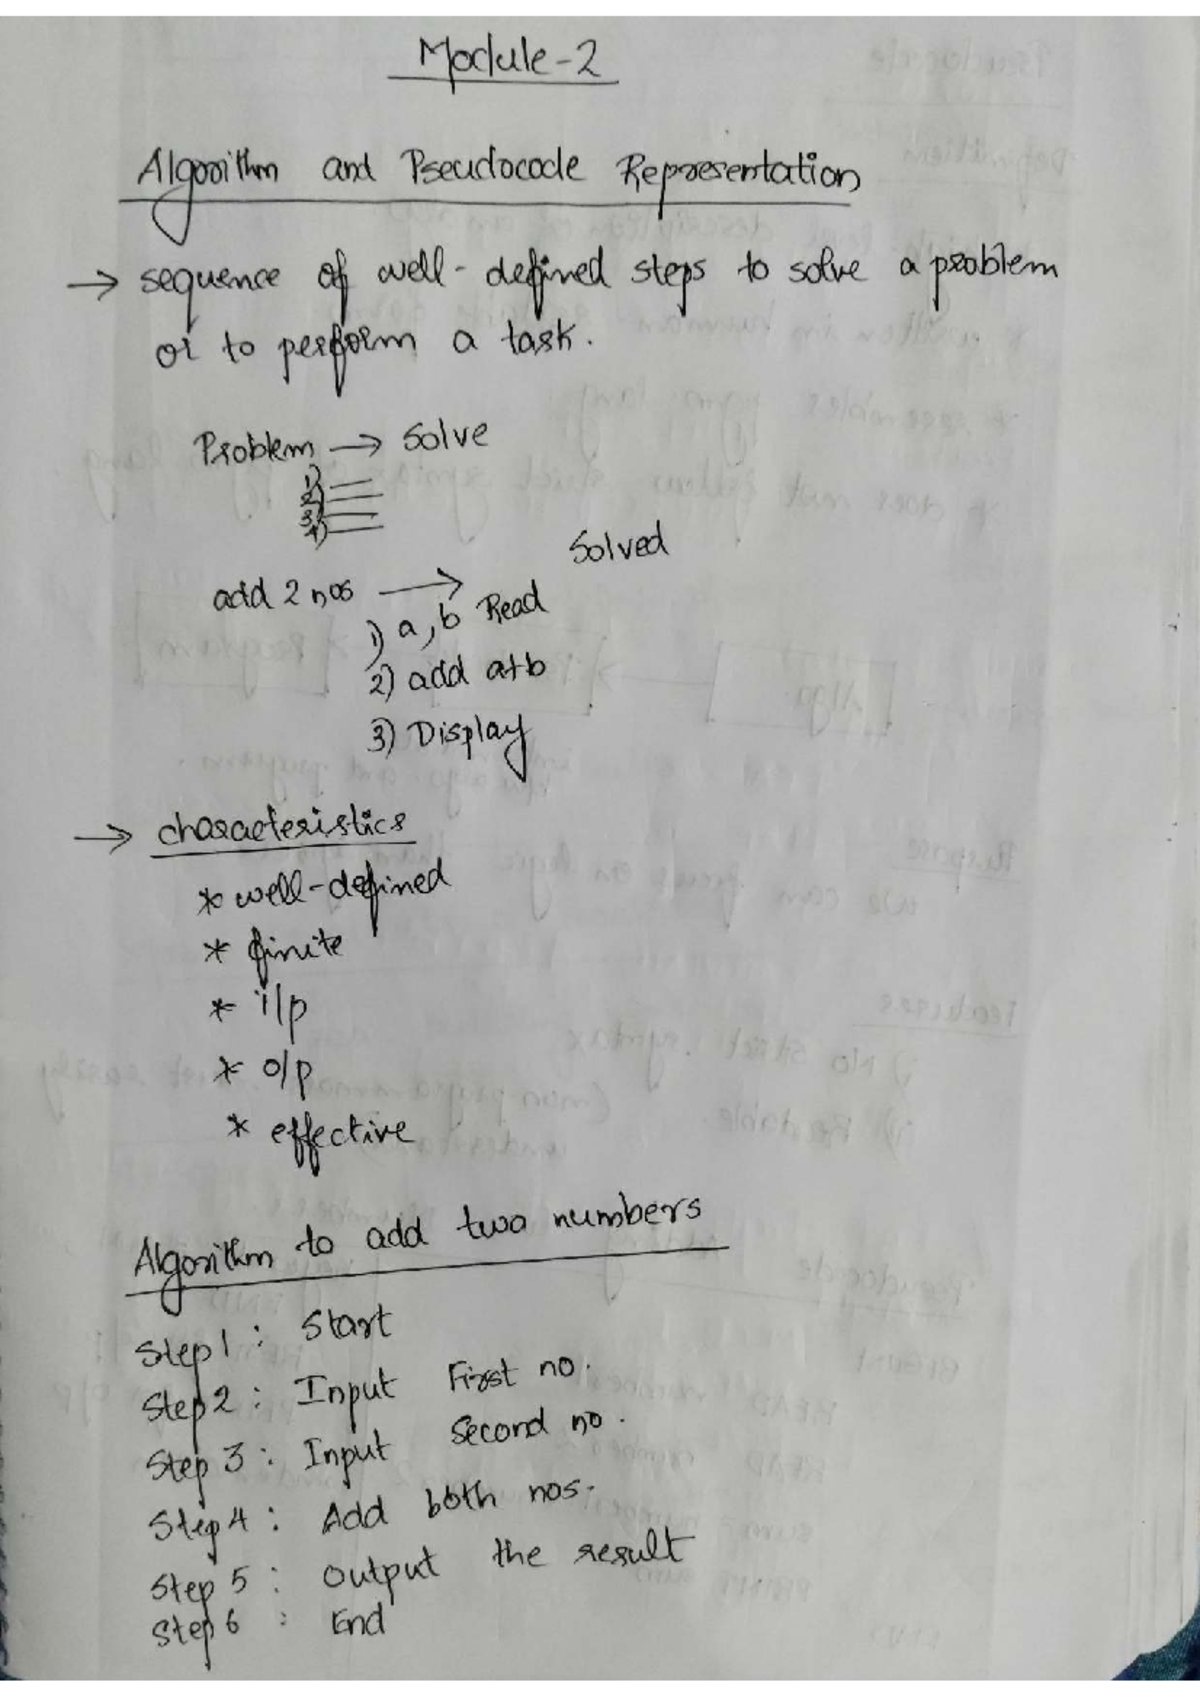 Module-2
Algorithm and Pseudocode Representation
→ sequence of well-defined steps to solve a problem
or to perform a task.
Problem → Solve
1)
2)
3)
4)
Solved
add 2 nos →
1) a,b Read
2) add a+b
3) Display
→ characteristics
* well-defined
* finite
* i/p
* o/p
* effective
Algorithm to add two numbers
Step1 : Start
Step2 : Input First no.
Step 3 : Input Second no.
Step 4 : Add both nos.
Step 5 : Output the result
Step 6 : End